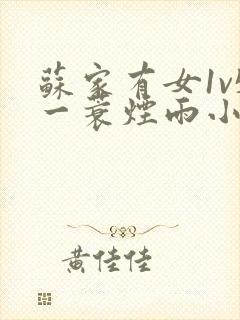 蘇家有女1v
一蓑煙雨小
黃佳佳